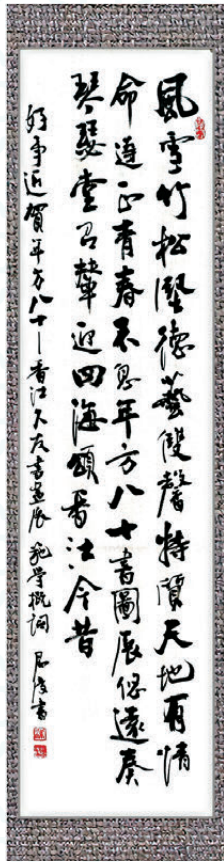 風雪竹松堅德藝雙馨特質天地有情
命正青春不息年方八十書圖展悠遠奏
琴瑟堂召迎四海頌香江今昔
好事近賀年方八十—香江久友書畫展 施學概詞 書